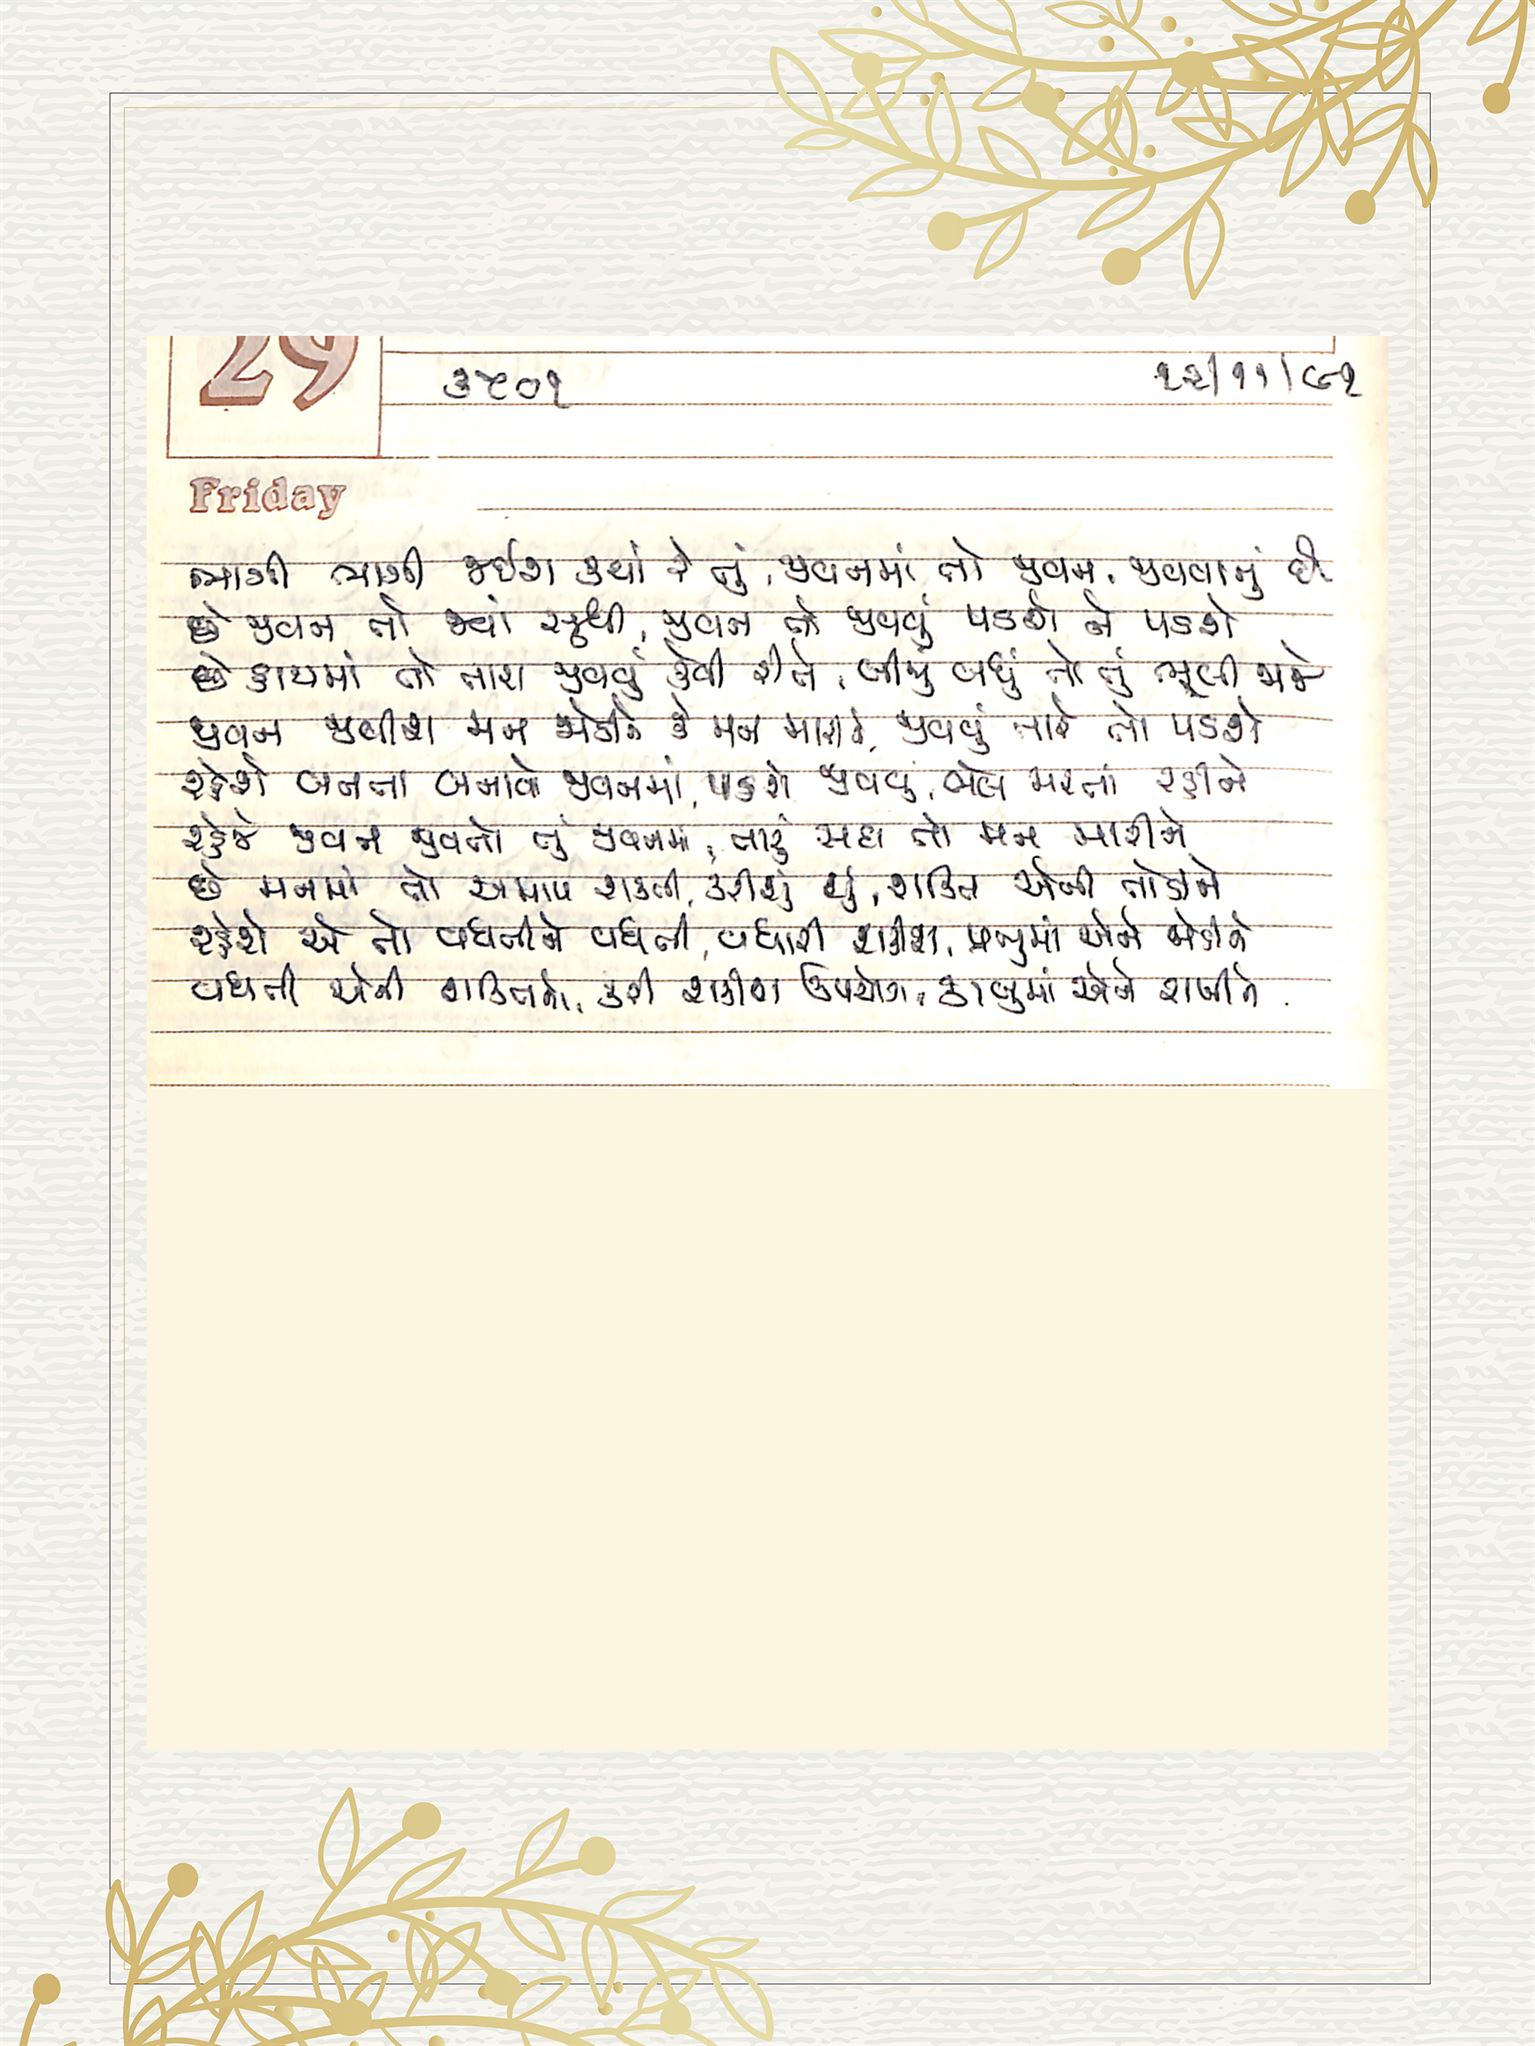 29
૩૫૦૧ ૧૨/૧૧/૯૧
Friday
ભાગી ભાગી જઈશ ક્યાં રે તું, જીવનમાં તો જીવન, જીવવાનું છે
છે જીવન તો જ્યાં સુધી, જીવન તો જીવવું પડશે ને પડશે
છે હાથમાં તો તારા જીવવું કેવી રીતે, બીજું બધું તો તું ભૂલી જાજે
જીવન જીવીશ મન જોડીને કે મન મારીને, જીવવું તારે તો પડશે
રહેશે બનતા બનાવો જીવનમાં, પડશે જીવવું, મેલ મરતાં રહીને
રહેજે જીવન જીવતો તું જીવનમાં, તારું સદા તો મન મારીને
છે મનમાં તો અમાપ શક્તિ, કરીશું શું, શક્તિ એની તોડીને
રહેશે એ તો વધતીને વધતી, વધારી શકીશ, પ્રભુમાં એને જોડીને
વધતી એની શક્તિનો, કરી શકીશ ઉપયોગ, કાબુમાં એને રાખીને.